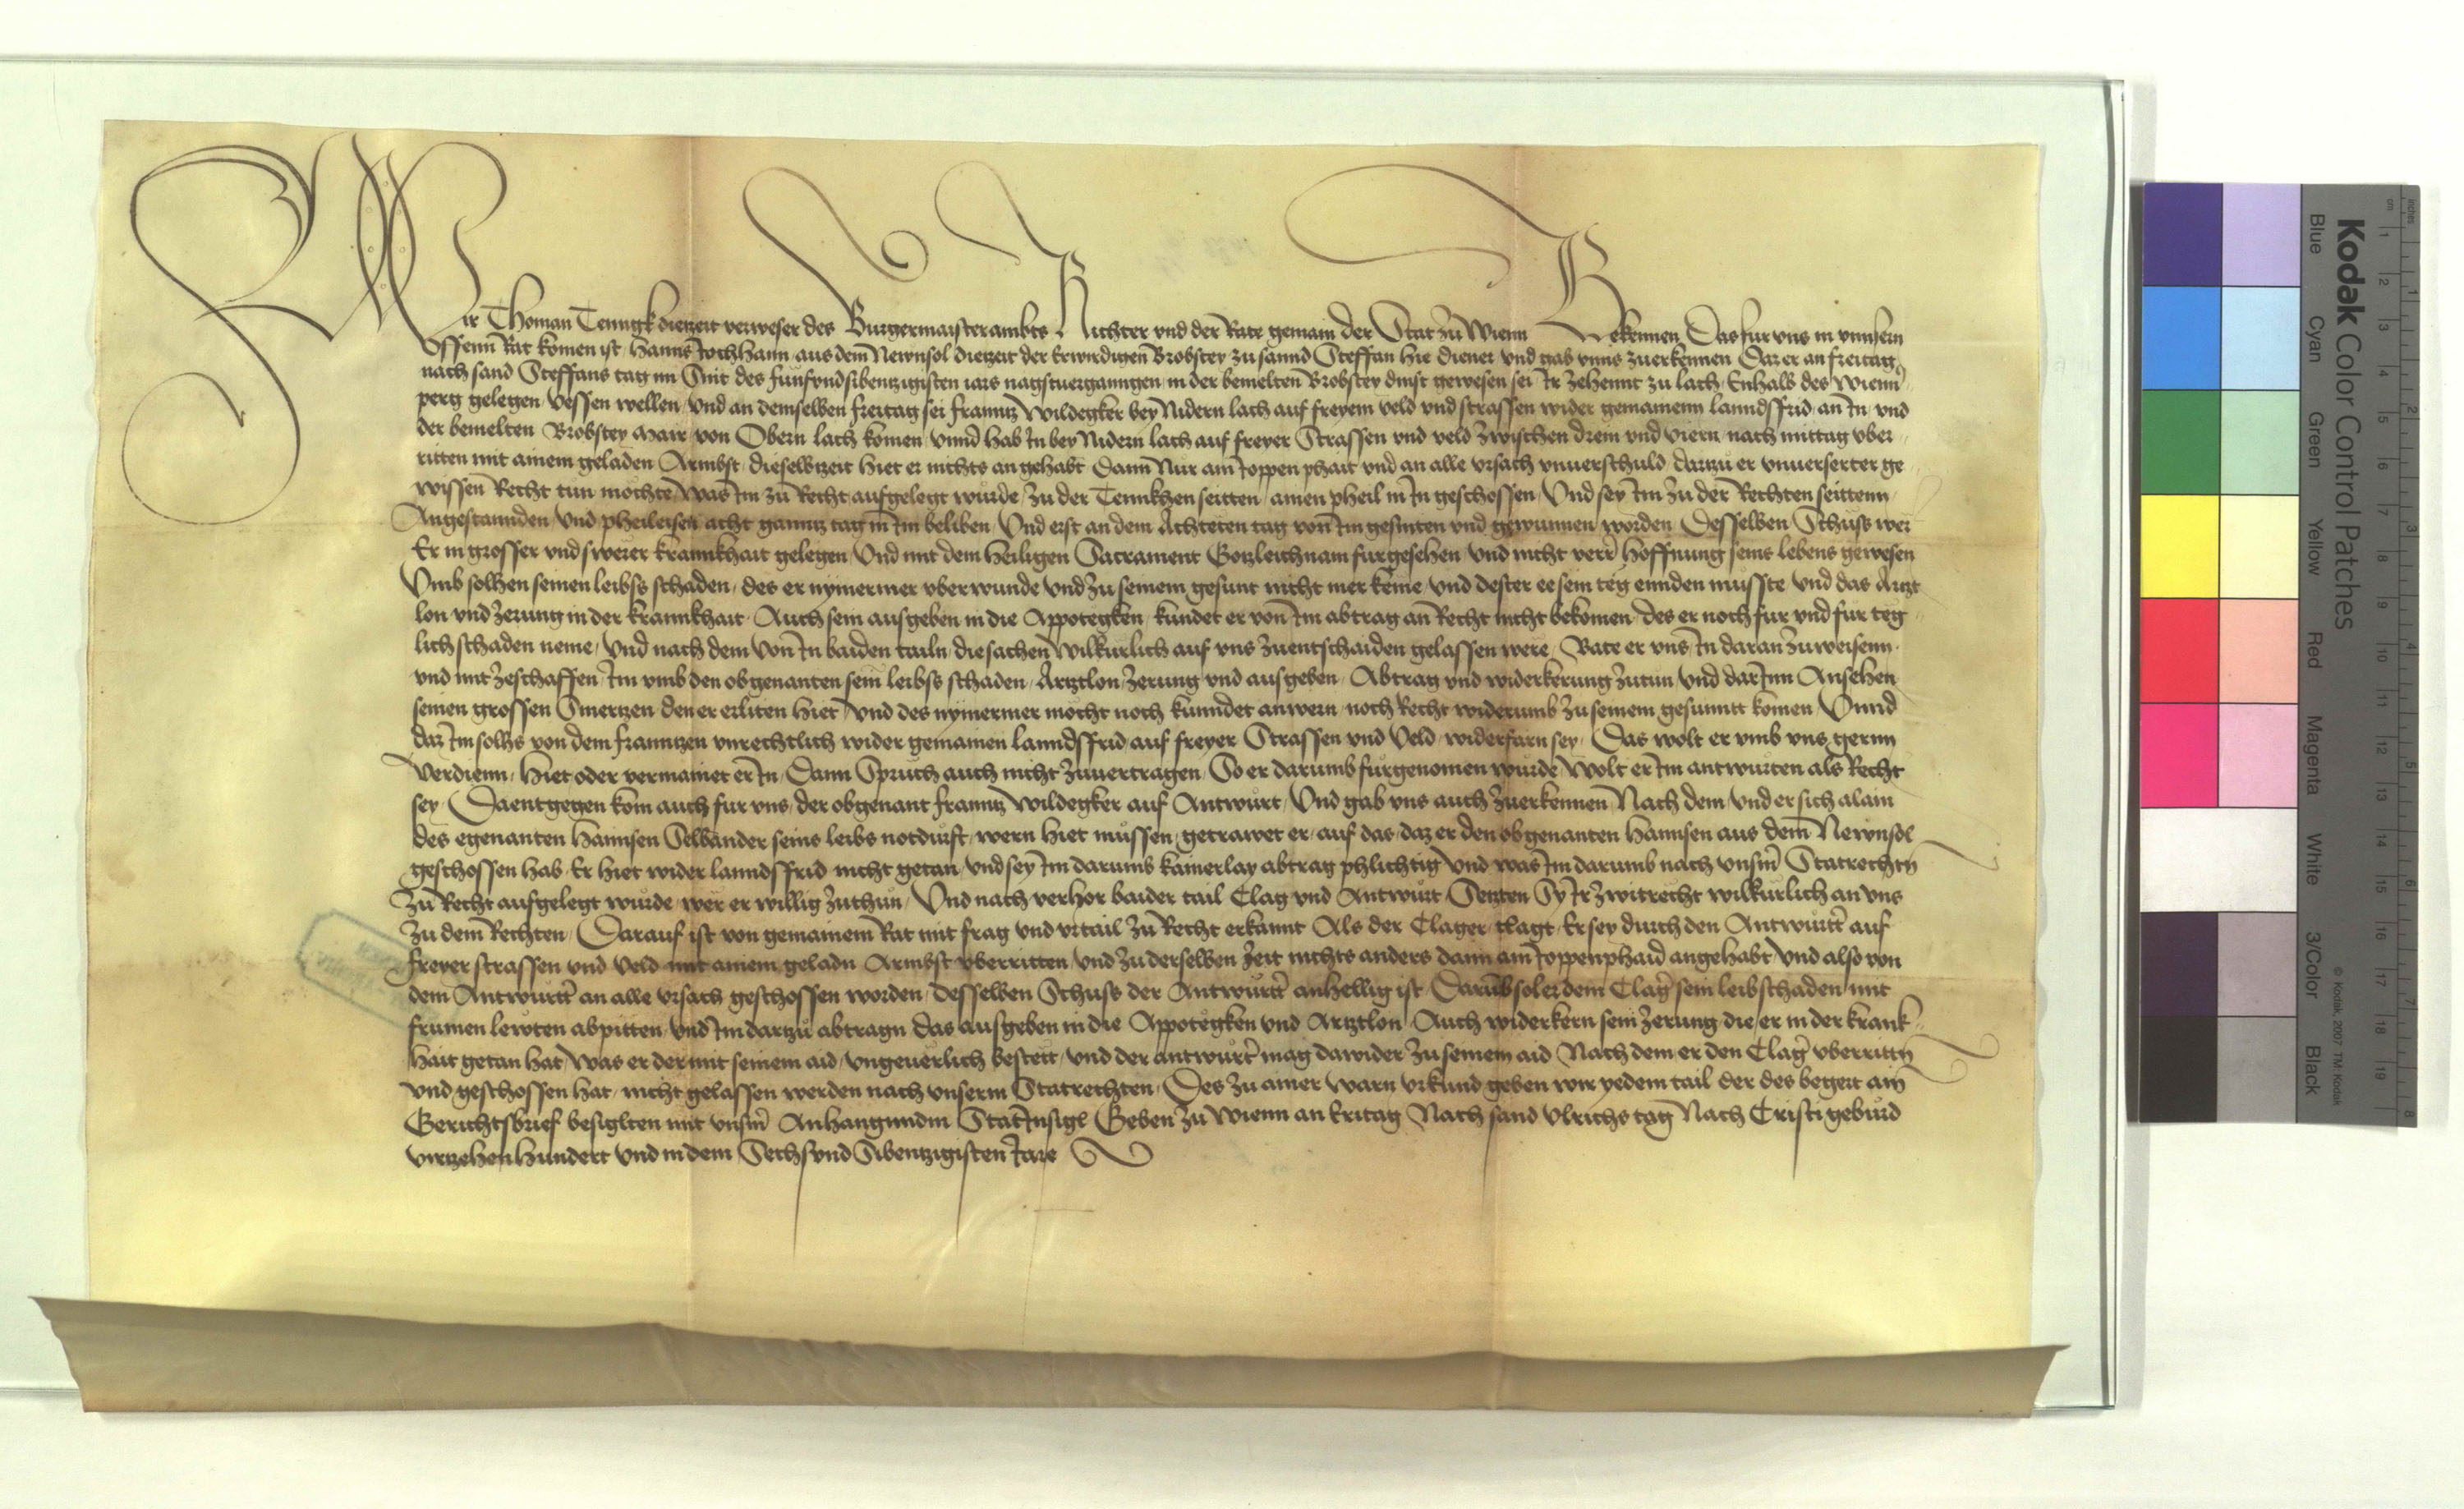 Wir Thoman Tennigk dietzeit verweser des Burgermaisterambts Richter vnd der Rate gemain der Stat zu Wienn Bekennen Das fur vns in vnnserm
Offenn Rat komen ist Hanns Jochhann aus dem Newnsol dietzeit der Erwirdigen Brobstey zu sannd Steffan hie diener vnd gab vnns zuerkennen Daz er an freitag
nach sand Steffans tag im Snit des funfvndsibentzigisten iars nagstuergangen in der bemelten Brobstey dinst gewesen sei Ir zehennt zu lach Enhalb des Wienn
perg gelegen vessen wellen vnd an demselben freitag sei franntz Wildegker bey Nidern lach auf freyem veld vnd strassen wider gemainenn lanndsfrid an In vnd
der bemelten Brobstey Mair von Obern lach komen vnnd hab In bey Nidern lach auf freyer Strassen vnd veld zwischen drein vnd viern nach mittag vber
ritten mit ainem geladen Armbst dieselbzeit hiet er nichts angehabt Dann Nur ain Joppen phait vnd an alle vrsach vnuerschuld dartzu er vnuerserter ge
wissen Recht tun mochte was Im zu Recht aufgelegt wurde zu der Tennkhen seitten ainen pheil in In geschossen Vnd sey Im zu der Rechten seittenn
Angestannden vnd pheileisen acht ganntz tag in Im beliben Vnd erst an dem Achteten tag von Im gesniten vnd gewunnen worden Desselben Schuss wer
Er in grosser vnd swerer krannkhait gelegen Vnd mit dem heiligen Sacrament Gotzleichnam furgesehen vnd nicht verr hoffnung seins lebens gewesen
Vmb solhen seinen leibss schaden des er nymermer vberwunde vnd zu seinem gesunt nicht mer keme vnd dester ee sein teg ennden musste vnd das Artzt
lon vnd zerung in der krannkhait Auch sein ausgeben in die Appotegken kundet er von Im abtrag an Recht nicht bekomen des er noch fur vnd fur teg
lich schaden neme Vnd nach dem von In baiden tailn die sachen wilkurlich auf vns zuentschaiden gelassen were Bate er vns In daran zuweisenn
vnd mit zeschaffen Im vmb den obgenanten sein leibss schaden Artztlon zerung vnd ausgeben Abtrag vnd widerkerung zutun vnd darInn Ansehen
seinen grossen Smertzen den er erliten hiet Vnd des nymermer mocht noch kunndet anwern noch Recht widerumb zu seinem gesunntt komen Vnnd
daz Im solhs von dem franntzen vnrechtlich wider gemainen lanndsfrid auf freyer Strassen vnd Veld widerfarn sey Das wolt er vmb vns gernn
verdienn hiet oder vermainet er In Dann Spruch auch nicht zuuertragen So er darumb furgenomen wurde wolt er Im antwurten als Recht
sey Daentgegen kom auch fur vns der obgenant franntz Wildegker auf Antwurt Vnd gab vns auch zuerkennen Nach dem vnd er sich alain
des egenanten Hannsen Selbander seins leibs notdurft wern hiet mussen getrawet er auf das daz er den obgenanten Hannsen aus dem Newnsol
geschossen hab Er hiet wider lanndsfrid nicht getan vnd sey Im darumb kainerlay abtrag phlichtig vnd was Im darumb nach vnsm Statrechtn
zu Recht aufgelegt wurde wer er willig zuthun Vnd nach verhor baider tail Clag vnd Antwurt Setzten Sy Ir zwitrecht wilkurlich an vns
zu dem Rechten Darauf ist von gemainem Rat mit frag vnd vrtail zu Recht erkannt Als der Clager clagt Er sey durch den Antwurtr auf
freyer strassen vnd Veld mit ainem geladn Armbst vberritten vnd zu derselben zeit nichts anders dann ain Joppenphaid angehabt vnd also von
dem Antwurtr an alle vrsach geschossen worden desselben Schuss der Antwurtr anhellig ist Darumb sol er dem Clagr sein leibschaden mit
frumen lewten abpitten vnd Im dartzu abtragn das ausgeben in die Appotegken vnd Artztlon Auch widerkern sein zerung die er in der krank
hait getan hat was er der mit seinem aid vngeuerlich bestett vnd der antwurtr mag dawider zu seinem aid Nach dem er den Clagr vberrittn
vnd geschossen hat nicht gelassen werden nach vnserm Statrechten Des zu ainer warn vrkund geben wir yedem tail der des begert ain
Gerichtsbrief besiglten mit vnsm Anhangunndm StatInsigl Geben zu Wienn an Eritag Nach sand Vlrichs tag Nach Cristi geburd
virtzehenhundert vnd in dem Sechsvnd Sibentzigisten Jare
Kodak Color Control Patches
Blue Cyan Green Yellow Red Magenta White 3/Color Black
© Kodak, 2007 TM: Kodak
cm 1 2 3 4 5 6 7 8 9 10 11 12 13 14 15 16 17 18 19
inches 1 2 3 4 5 6 7 8